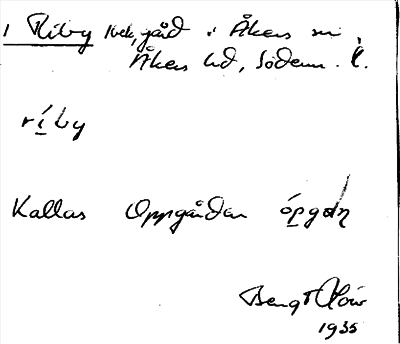 1 Riby bek, gård i Åkers sn,
Åkers hd, Söderm. l.
ri̱by
Kallas Oppgården ópgaṉ
Bengt
1935